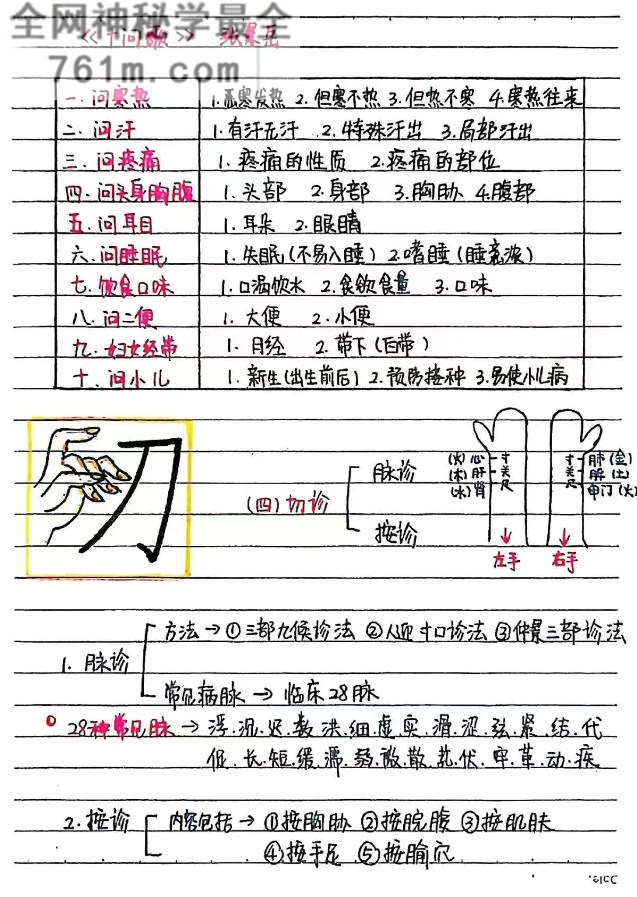 全网神秘学最全
761m.com
《十问歌》 张景岳
一.问寒热 1.恶寒发热 2.但寒不热 3.但热不寒 4.寒热往来
二.问汗 1.有汗无汗 2.特殊汗出 3.局部汗出
三.问疼痛 1.疼痛的性质 2.疼痛的部位
四.问头身胸腹 1.头部 2.身部 3.胸胁 4.腹部
五.问耳目 1.耳朵 2.眼睛
六.问睡眠 1.失眠(不易入睡) 2.嗜睡(睡意浓)
七.饮食口味 1.口渴饮水 2.食欲食量 3.口味
八.问二便 1.大便 2.小便
九.妇女经带 1.月经 2.带下(白带)
十.问小儿 1.新生(出生前后) 2.预防接种 3.易使小儿病
切
(四)切诊
脉诊
按诊
(火)心 寸
(木)肝 关
(水)肾 尺
左手
寸 肺(金)
关 脾(土)
尺 命门(火)
右手
1.脉诊
方法→①三部九候诊法 ②人迎寸口诊法 ③仲景三部诊法
常见病脉→临床28脉
28种常见脉→浮.沉.迟.数.洪.细.虚.实.滑.涩.弦.紧.结.代
促.长.短.缓.濡.弱.微.散.芤.伏.牢.革.动.疾
2.按诊
内容包括→①按胸胁 ②按脘腹 ③按肌肤
④按手足 ⑤按腧穴